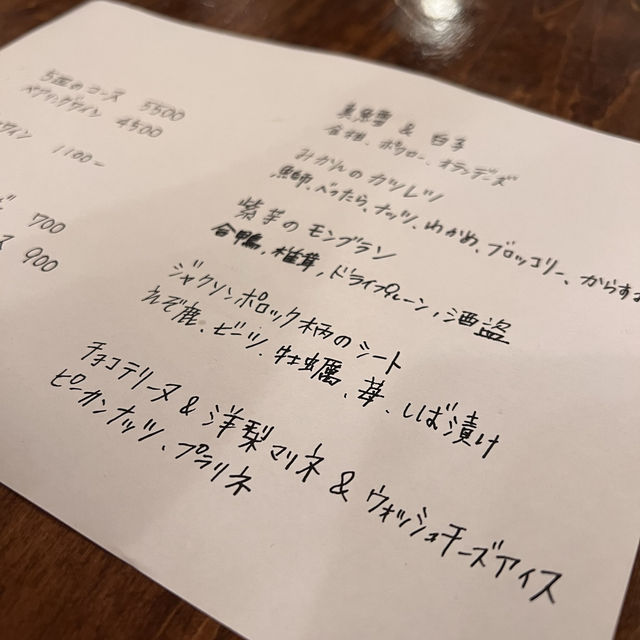 5皿のコース 5500
ペアリングワイン 4500
イン 1100-
700
ス 900
& 白子
百合根、ポワロー、オランデーズ
みかんのカツレツ
鰤、べったら、ナッツ、わかめ、ブロッコリー、からす
紫芋のモンブラン
合鴨、椎茸、ドライプルーン、酒盗
ジャクソンポロック柄のシート
えぞ鹿、ビーツ、牡蠣、苺、しば漬け
チョコテリーヌ & 洋梨マリネ & ウォッシュチーズアイス
ピーカンナッツ、プラリネ